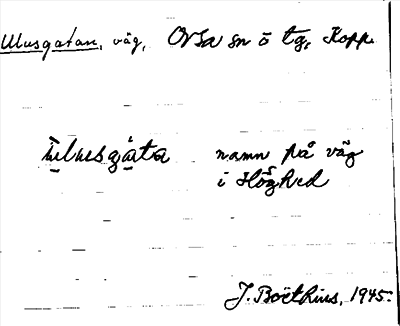 Ulusgatan, väg, Orsa sn ö tg, Kopp.
ùlusgàta namn på väg
i Höghed
J. Boëthius, 1945.